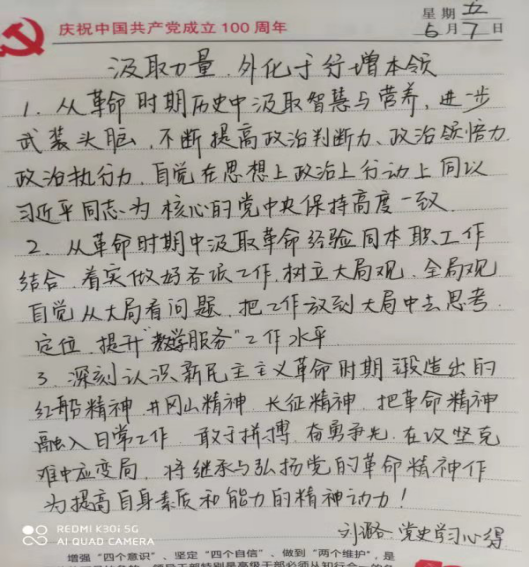 星期 五
庆祝中国共产党成立 100 周年
5 月 7 日
汲取力量、外化于行增本领
1、从革命时期历史中汲取智慧与营养，进一步
武装头脑，不断提高政治判断力、政治领悟力
政治执行力，自觉在思想上政治上行动上同以
习近平同志为核心的党中央保持高度一致
2、从革命时期中汲取革命经验同本职工作
结合，着实做好各项工作，树立大局观、全局观
自觉从大局看问题，把工作放到大局中去思考、
定位、提升“教学服务”工作水平
3、深刻认识新民主主义革命时期锻造出的
红船精神、井冈山精神、长征精神，把革命精神
融入日常工作，敢于拼搏、奋勇争先，在攻坚克
难中应变局，将继承与弘扬党的革命精神作
为提高自身素质和能力的精神动力！
党史学习心得
REDMI K30i 5G
AI QUAD CAMERA
增强“四个意识”、坚定“四个自信”、做到“两个维护”，是